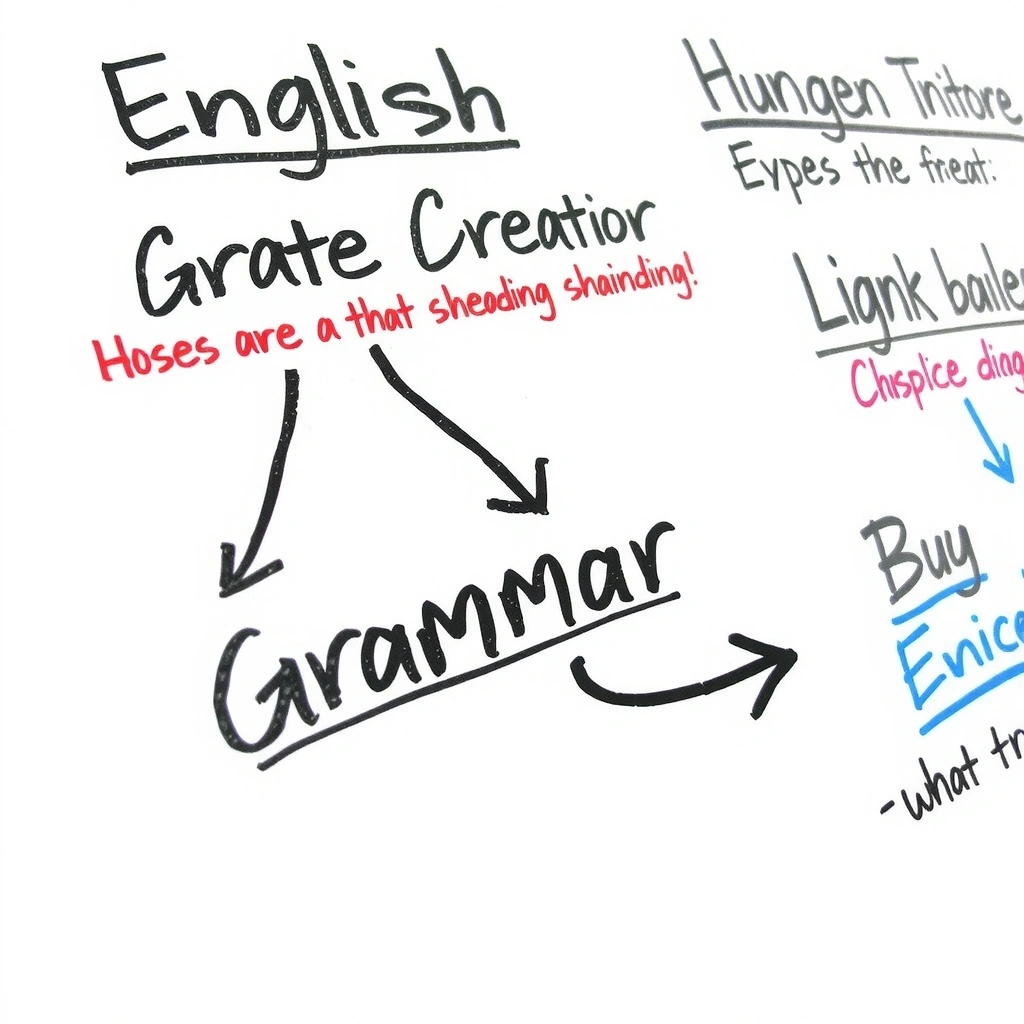 English
Grate Creatior
Hoses are a that sheading shainding!
Grammar
Hungen Tnitore
Eypes the freat:
Lignk bailes
Chisplce ding
Buy
Enice
-what tr